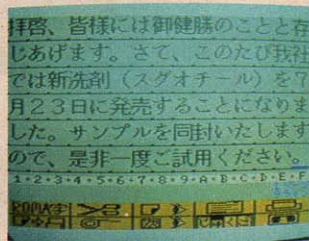 拝啓、皆様には御健勝のことと存
じあげます。さて、このたび我社
では新洗剤（スグオチール）を7
月23日に発売することになりま
した。サンプルを同封いたします
ので、是非一度ご試用ください。
1・2・3・4・5・6・7・8・9・A・B・C・D・E・F